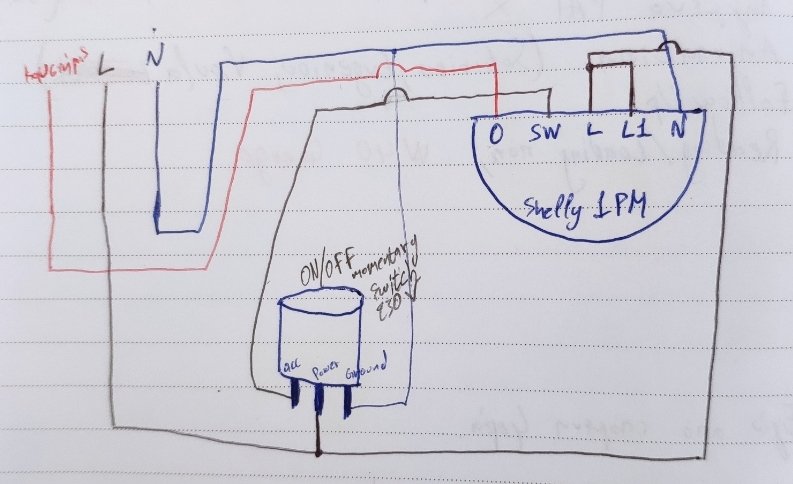 L
N
O SW L L1 N
Shelly 1PM
ON/OFF momentary
switch
230V
acc Power Ground